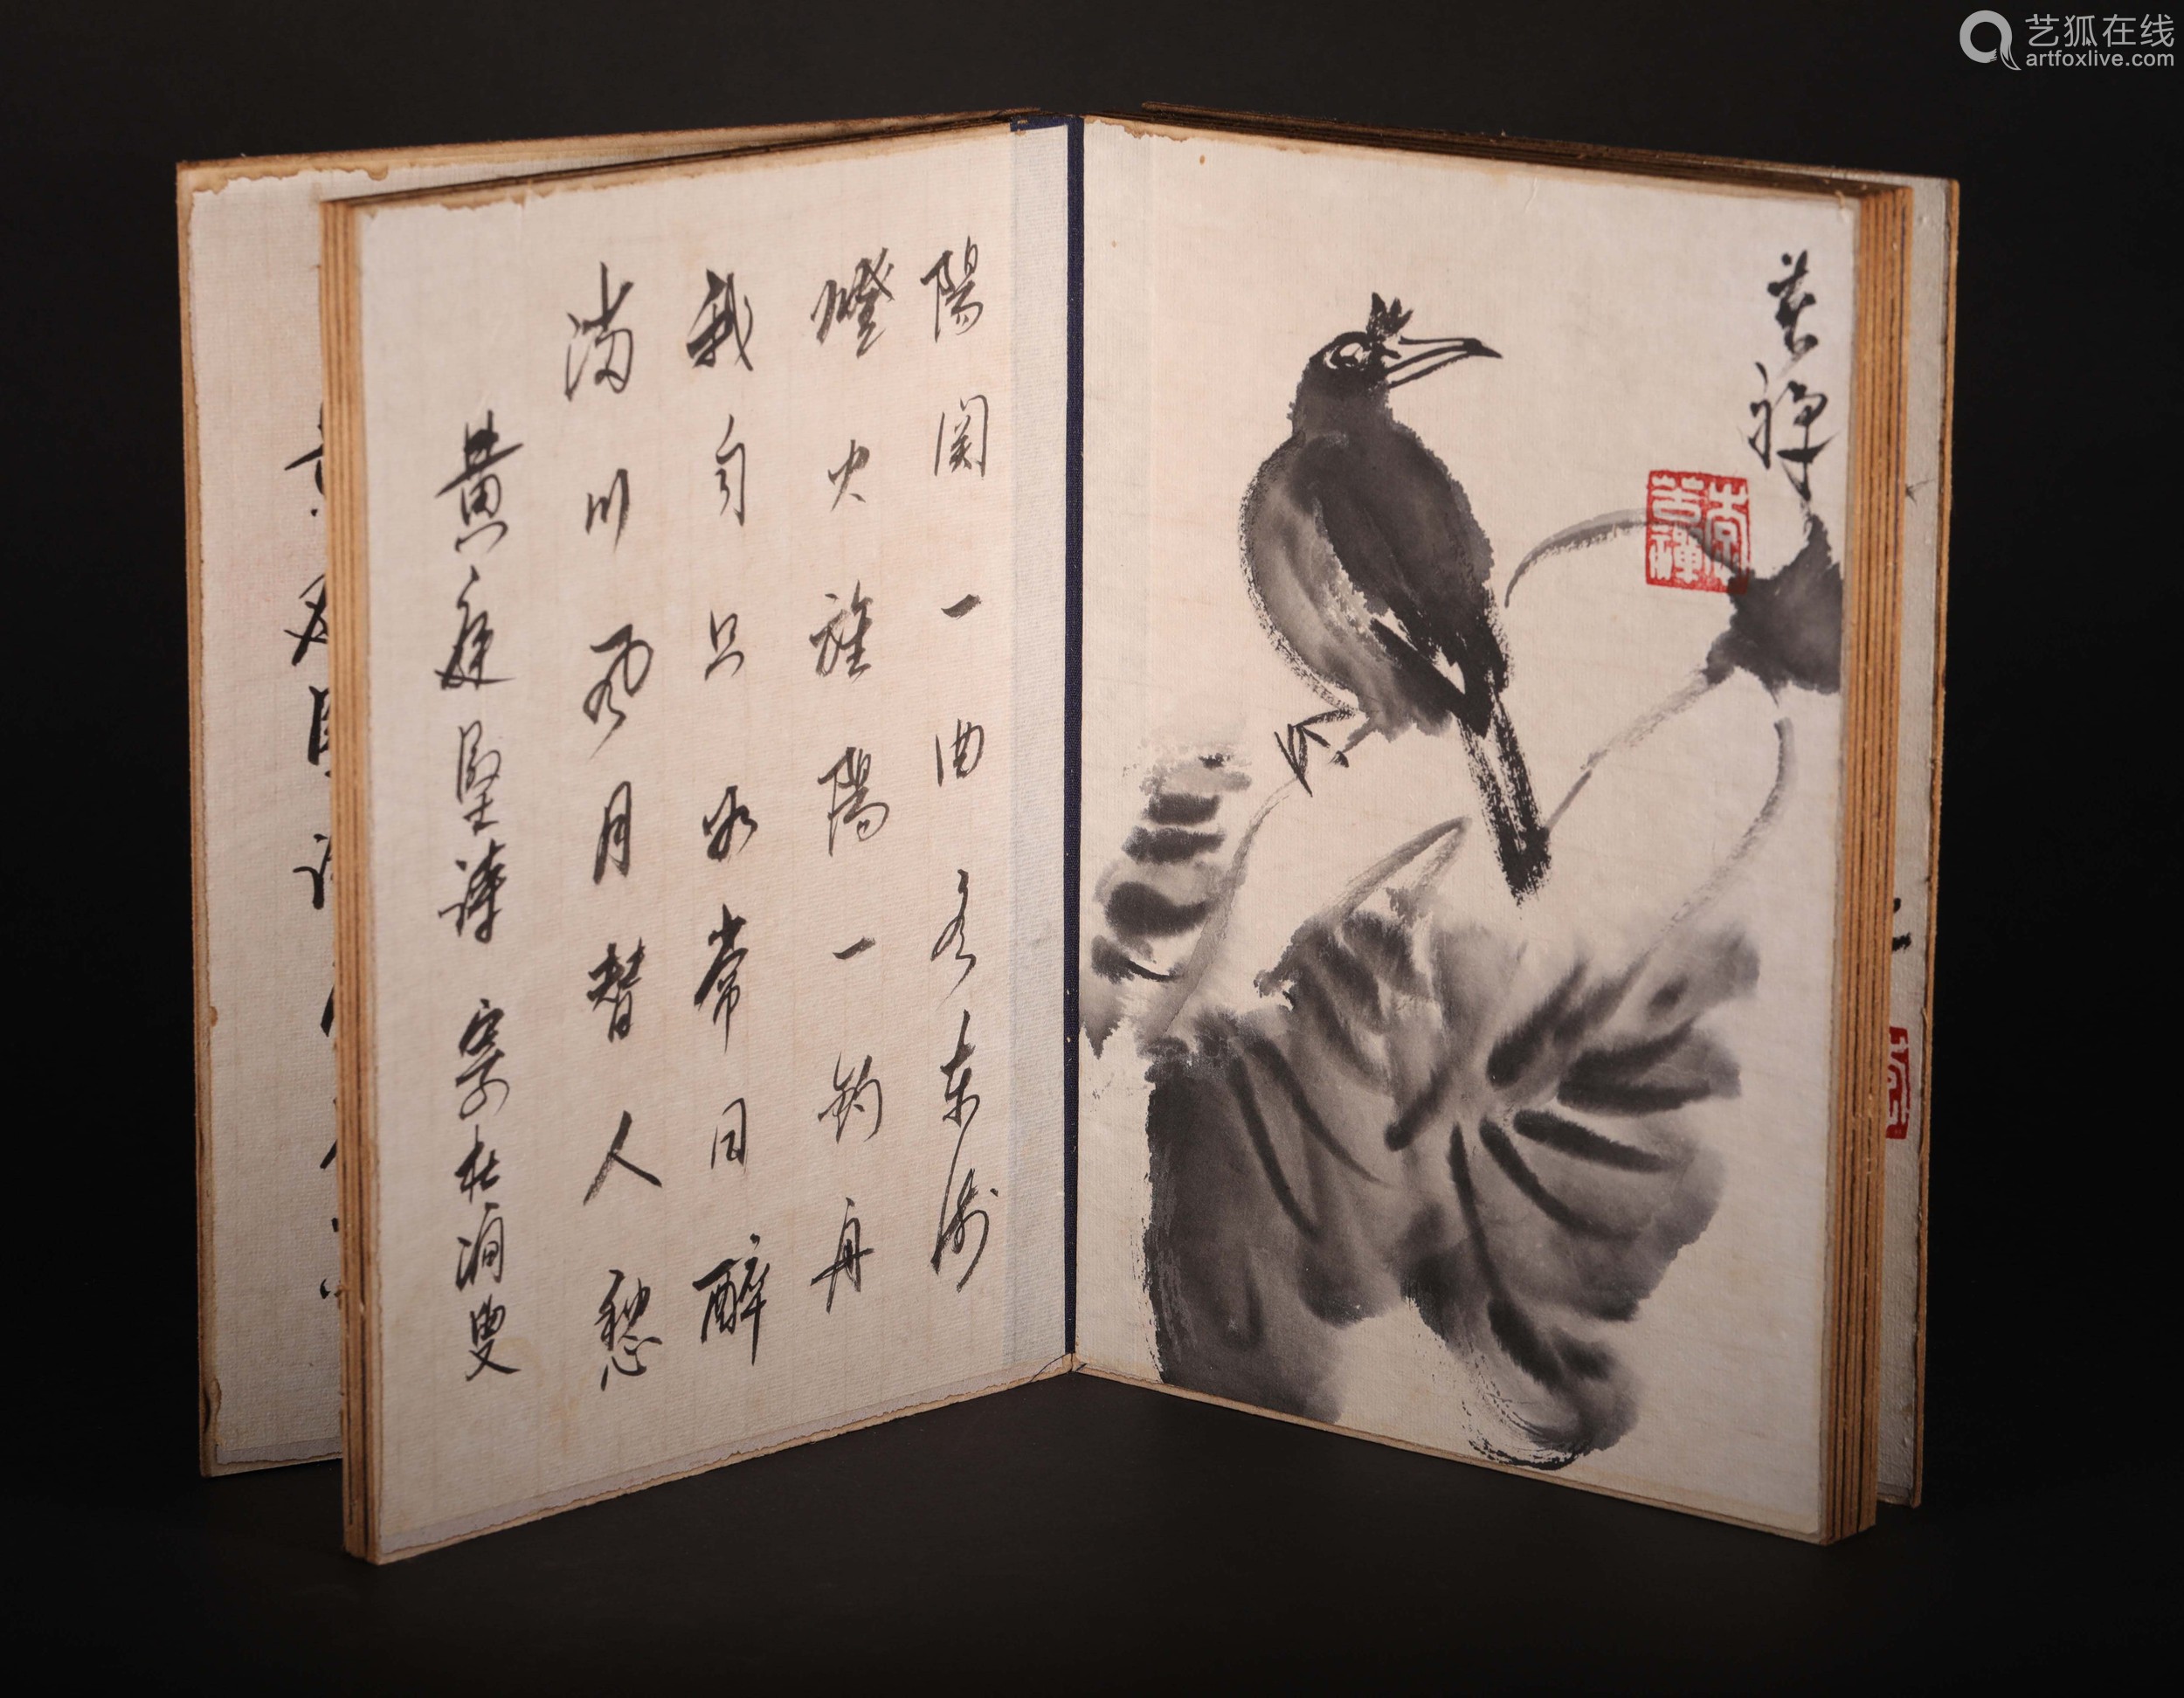 艺狐在线
artfoxlive.com
苦禅
李苦禪
陽関一曲水東流
燈火旌陽一釣舟
我自只如常日醉
满川風月替人愁
黄庭堅詩 寄杜澗叟